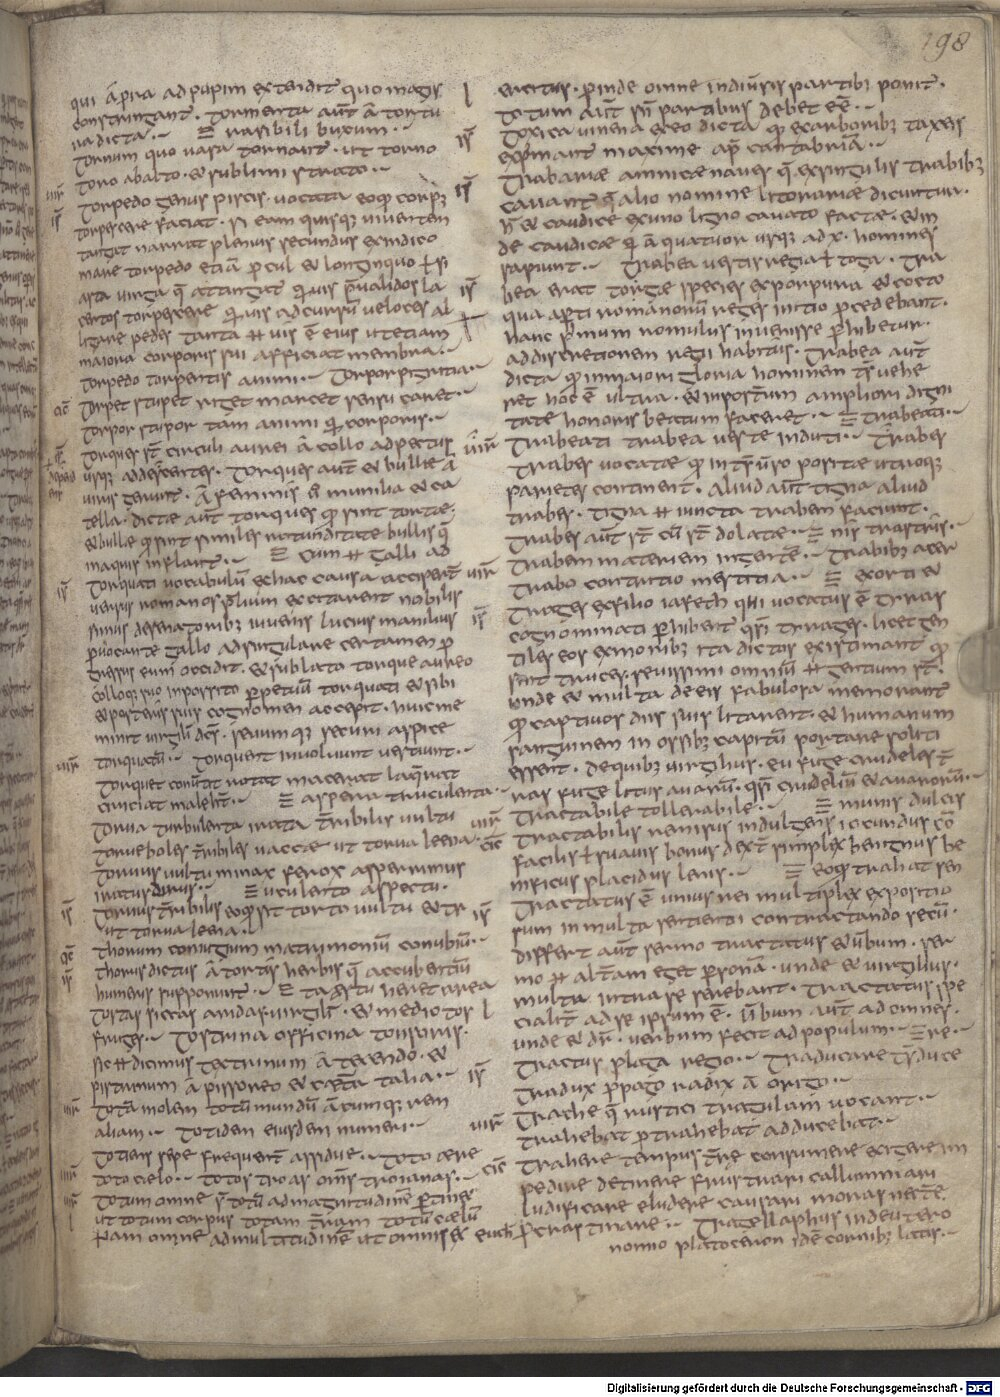 198
qui a pria ad pupim extendit quo magis
constringant. Tormenta aut a tortu
ra dicta. rasibili buxum.
Tornum quo vasa tornant. ut torno
Toro ab alto. et sublimi strato.
Torpedo genus piscis. vocata eoq corpꝰ
torpescere faciat. si eam quisque viventem
tangat narrat plenius secundus ex indico
mare torpedo etiā procul et longinquo ł si
asta virga q̄ attingat quis validos la
certos torpescere quis ad cursum veloces al
ligare pedes tanta vis ē eius ut etiam
maiora corporis sui afficiat membra.
Torpedo torpentis animi. Torpor pigritia.
Torpet stupet riget marcet sensu caret.
Torpor stupor tam animi q̄ corporis.
Torques st circuli aurei a collo ad pectus
usque addescentes. Torques aut et bullae a
viris gerunt. a feminis monilia et ca
tella. dictae aut torques quod sint tortae.
et bullae q sint similes rotunditate bullis q̄
in aquis inflant. Cum galli ad
Torquati vocabulum ex hac causa acceperunt
versus romanos plium excitarent nobilis
simus defensoribus iuvenis lucius manlius
pvocante gallo ad singulare certamen p
gressus eum occidit. et sublata torque aureo
colloque suo inpossito perpetuum torquati et sibi
et posteris suis cognomen accepit. huic me
minit virgilius dcs. sevumque securi aspice
torquatū. Torquent involvunt vestiunt.
Torquet convertit rotat macerat laquerat
cruciat maledict. aspera truculenta.
Torva turbulenta irata terribilis vultu
Torve boles terribiles vaccae ut torva leena.
Torvus vultu minax ferox asperrimus
iratus durus. uculento aspectu.
Torvus terribilis eoq sit torto vultu et tr
ut torva leena.
Thorum coniugium matrimonium conubium.
Thorus dictus a tortis herbis q̄ accubentium
humeris supponunt. ta aestu heret area
Tostas siccas aridas. virgilii. et medio tos
fruges. Tostrina officina tonsoris.
sic dicimus textrinum a texendo. et
pistrinum a pissoreo et caetera talia.
Totā molem totū mundū a cumque rem
aliam. Totidem eiusdem numeri.
Totiens sepe frequent assidue. Toto aere
toto caelo. Totos troas omnes troianas.
Totum omne totū ad magnitudinē ptinet
ut totum corpus totam terram totū caelum
tam omne ad multitudinē ut omnis ex
ercitus. pinde omne in diversis partibus ponit.
Totum aut sn partibus debet ēē.
Toxica venena ex eo dicta q ex arboribus taxeis
exprimant maxime ap cantabriam.
Trabariae amnicae naves q̄ ex singulis trabibus
cavantur q̄ alio nomine litorariae dicuntur.
et caudice ex uno ligno cavato factae. et in
de caudicae q a quatuor usque ad x. homines
rapiunt. Trabea vestis regia ł toga. Tra
bea erat togae species ex porpura et cocto
qua apti romanorum reges initio pcedebant.
hanc primum romulus invenisse phibetur
ad discretionem regii habitus. Trabea aut
dicta q in maiori gloria hominem ts vehe
ret hoc ē ultra. et inposterum ampliori digni
tate honoris beatum faceret. Trabeati.
Trabeati trabea veste induti. Trabes
Trabes vocatae q in tsverso positae utrosque
parietes contineant. aliud aut tigna aliud
trabes. tigna iuncta trabem faciunt.
Trabes aut st cū st dolatae. nis trastris.
Trabem materiem ingentē. Trabibus acer
Trabo contractio mestitia. exorti et
Traces ex filio iafeth qui vocatus ē Tyras
cognominati phibent qsi thraces. licet gen
tiles eos ex moribus ita dictos existimant q
sint truces. sevissimi omnium gentium st.
unde et multa de eis fabulosa memorant
q captivos diis suis litarent. et humanum
sanguinem in ossibus capitum portare soliti
essent. de quibus virgilius. eu fuge crudeles t
ras fuge litus avarū. qsi crudelium et avarorū.
Tractabile tollerabile. munis dulcis
Tractabilis remisus indulgens iocundus cō
facilis ł suavis bonus dext simplex benignus be
nificus placidus lenis. eoq trahat sen
Tractatus ē unius rei multiplex expositio
sum in multa sertienti contractando secū.
differt aut sermo tractatus et verbum. ser
mo alteram eget psonā. unde et virgilius.
multa inter se serebant. Tractatus spe
cialit ad se ipsum ē. verbum aut ad omnes.
unde et dr. verbum fecit ad populum. re.
Tractus plaga regio. Traducare tsduce
Tradux ppago radix a origo.
Trache q̄ rustici tragulam vocant.
Trahebat ptrahebat adducebat.
Trahere tempus tere consumere exigere im
pedire detinere frustrari callumniari
ludificare eludere causari moras necte.
pcrastinare. Tragellaphus in deutero
nomio platoceron idē cornibus latis.
Digitalisierung gefördert durch die Deutsche Forschungsgemeinschaft - DFG